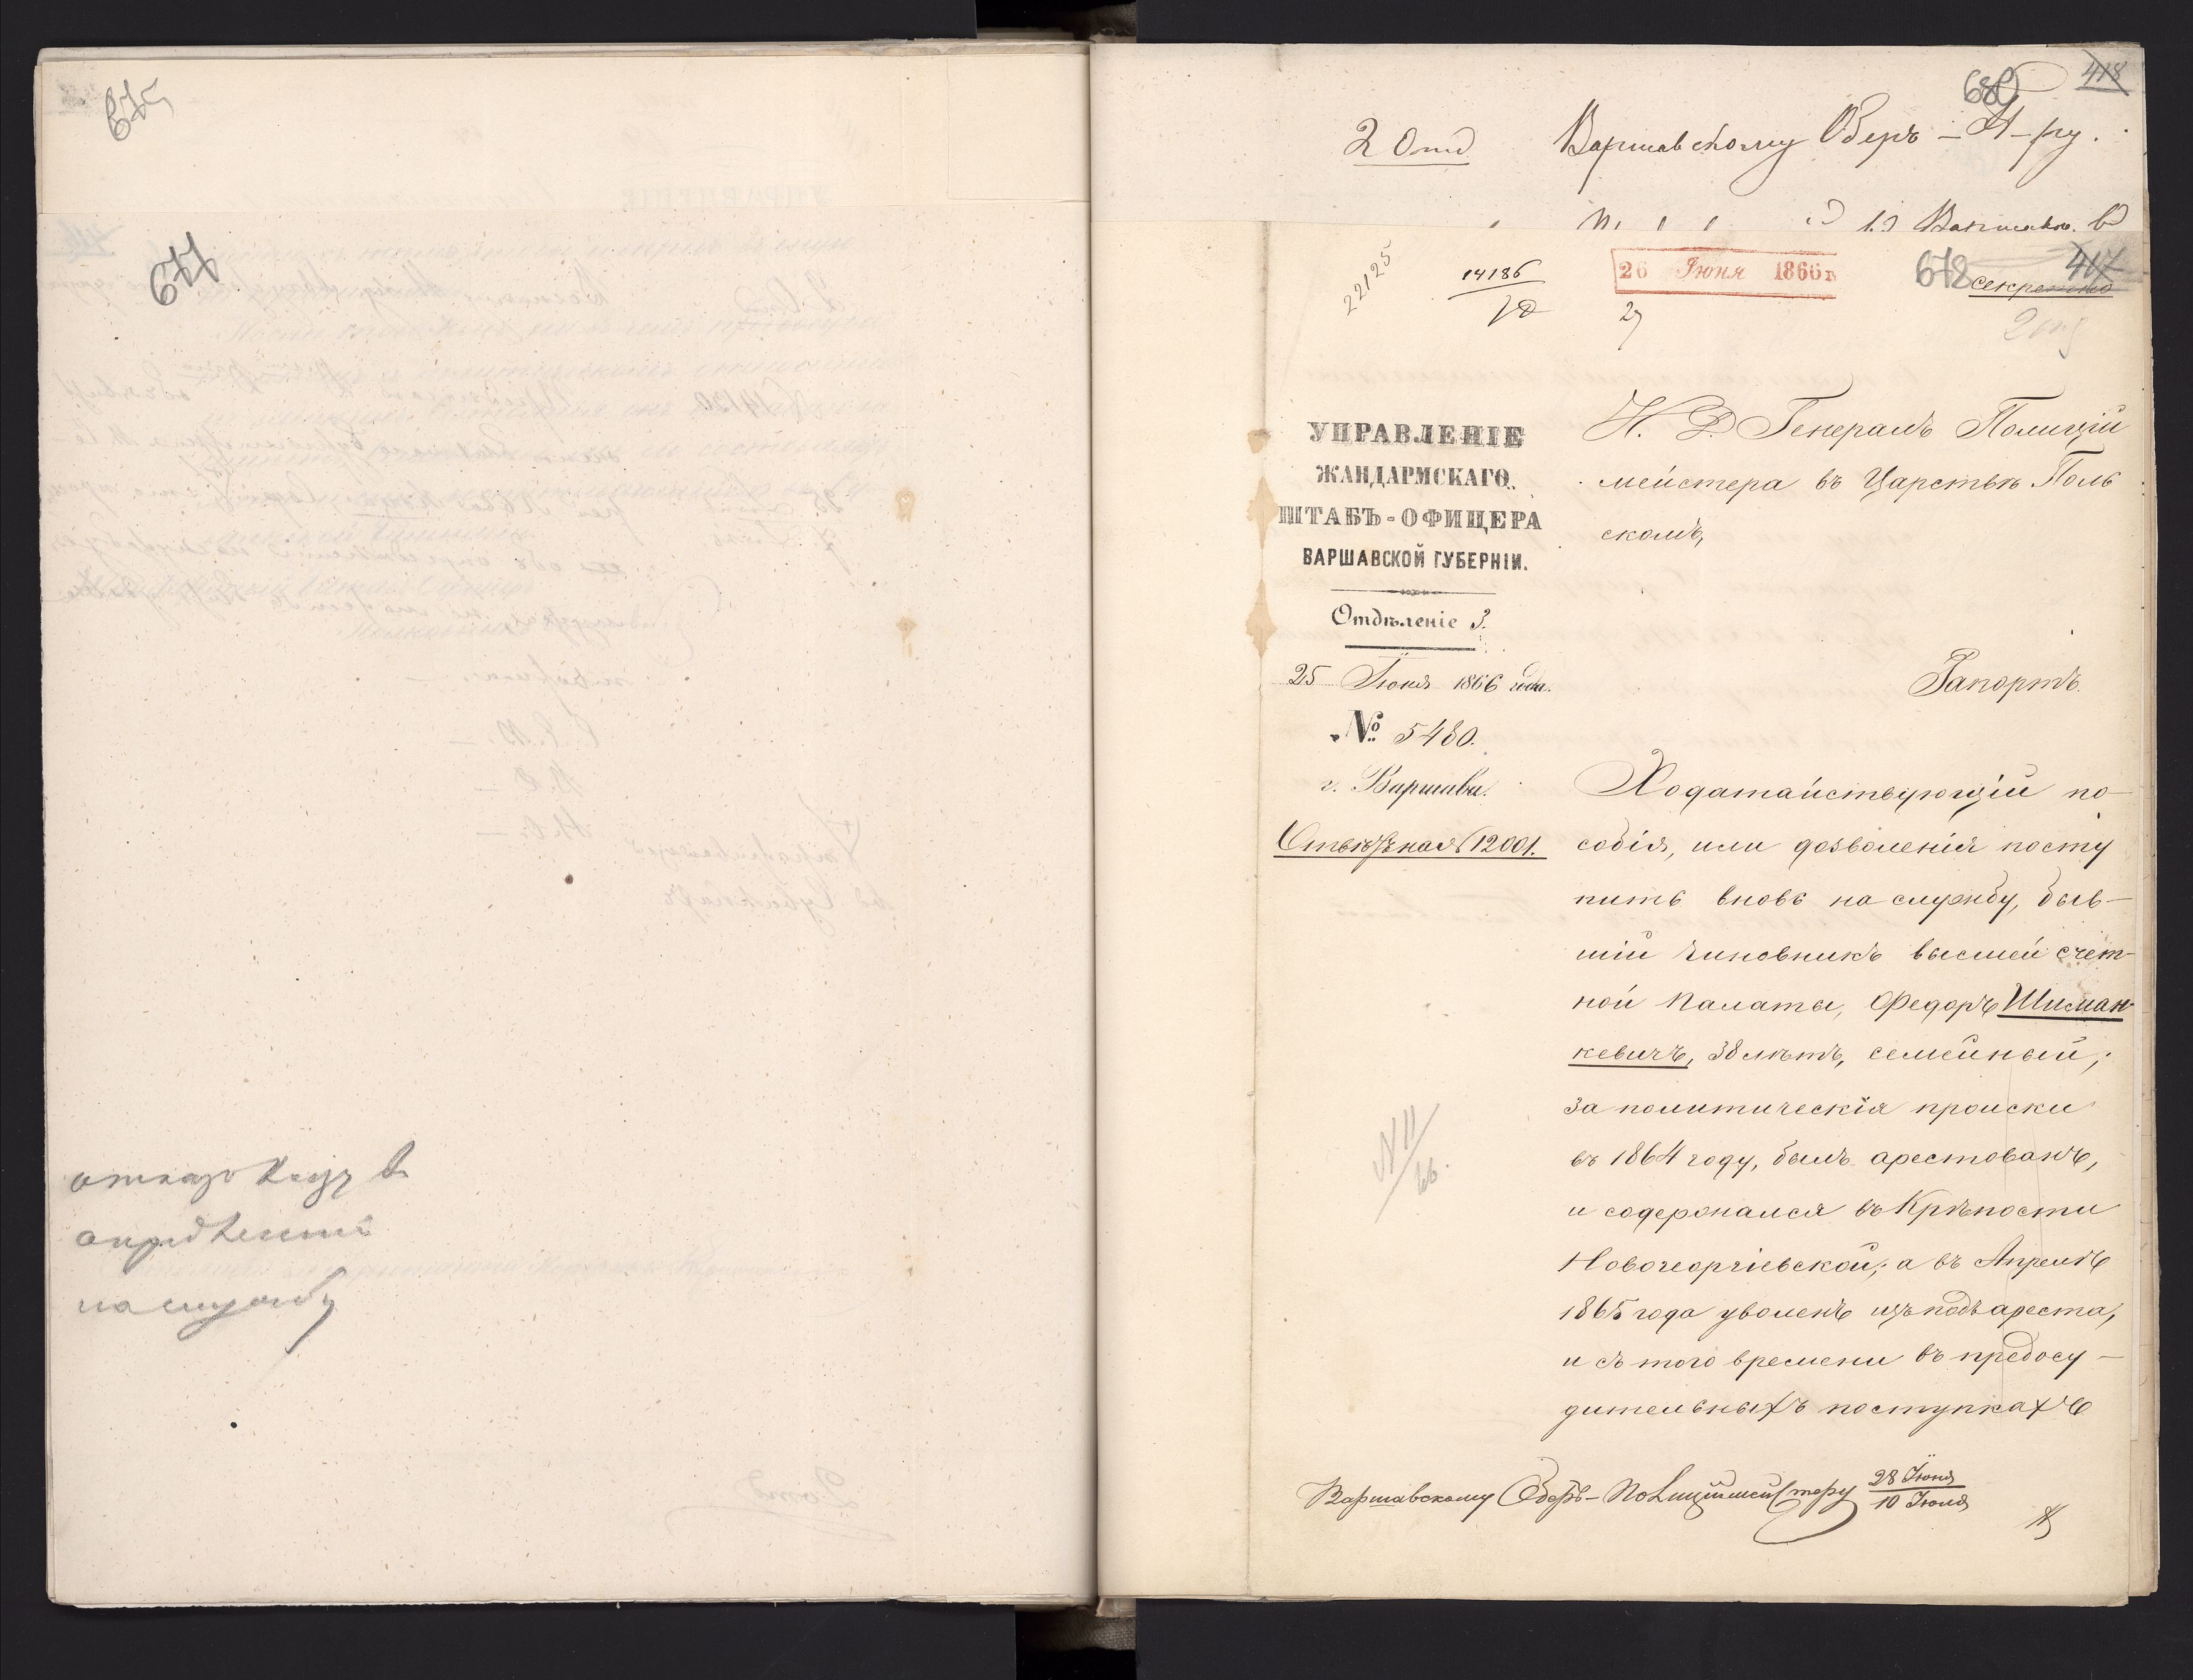 675
677
отказ
на службу
680
418
2 Отд
Варшавскому Оберъ-П-ру.
22125
14186
26 Іюня 1866 г.
678
417
секретно
2 отд
УПРАВЛЕНІЕ
ЖАНДАРМСКАГО
ШТАБЪ-ОФИЦЕРА
ВАРШАВСКОЙ ГУБЕРНІИ.
Отдѣленіе 3.
25 Іюня 1866 года.
№ 5480.
г. Варшава.
12001.
И. Д. Генералъ Полиціи
мейстера въ Царствѣ Поль
скомъ,
Рапортъ.
Ходатайствующій по-
собія, или дозволенія посту
пить вновь на службу, быв-
шій чиновникъ высшей счет-
ной палаты, Федоръ Шиман
кевичъ, 38 лѣтъ, семейный;
за политическія происки
въ 1864 году, былъ арестованъ,
и содержался въ Крѣпости
Новогеоргіевской; а въ Апрелѣ
1865 года уволенъ изъ подъ ареста,
и съ того времени въ предосу-
дительныхъ поступкахъ
Варшавскому Оберъ-Полиціймейстеру 28 Іюня
10 Іюля